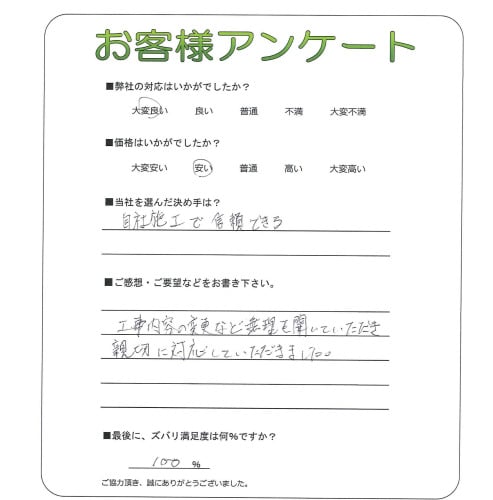 お客様アンケート
■弊社の対応はいかがでしたか？
大変良い 良い 普通 不満 大変不満
■価格はいかがでしたか？
大変安い 安い 普通 高い 大変高い
■当社を選んだ決め手は？
自社施工で信頼できる
■ご感想・ご要望などをお書き下さい。
工事内容の変更など無理を聞いていただき
親切に対応していただきました。
■最後に、ズバリ満足度は何％ですか？
100 ％
ご協力頂き、誠にありがとうございました。